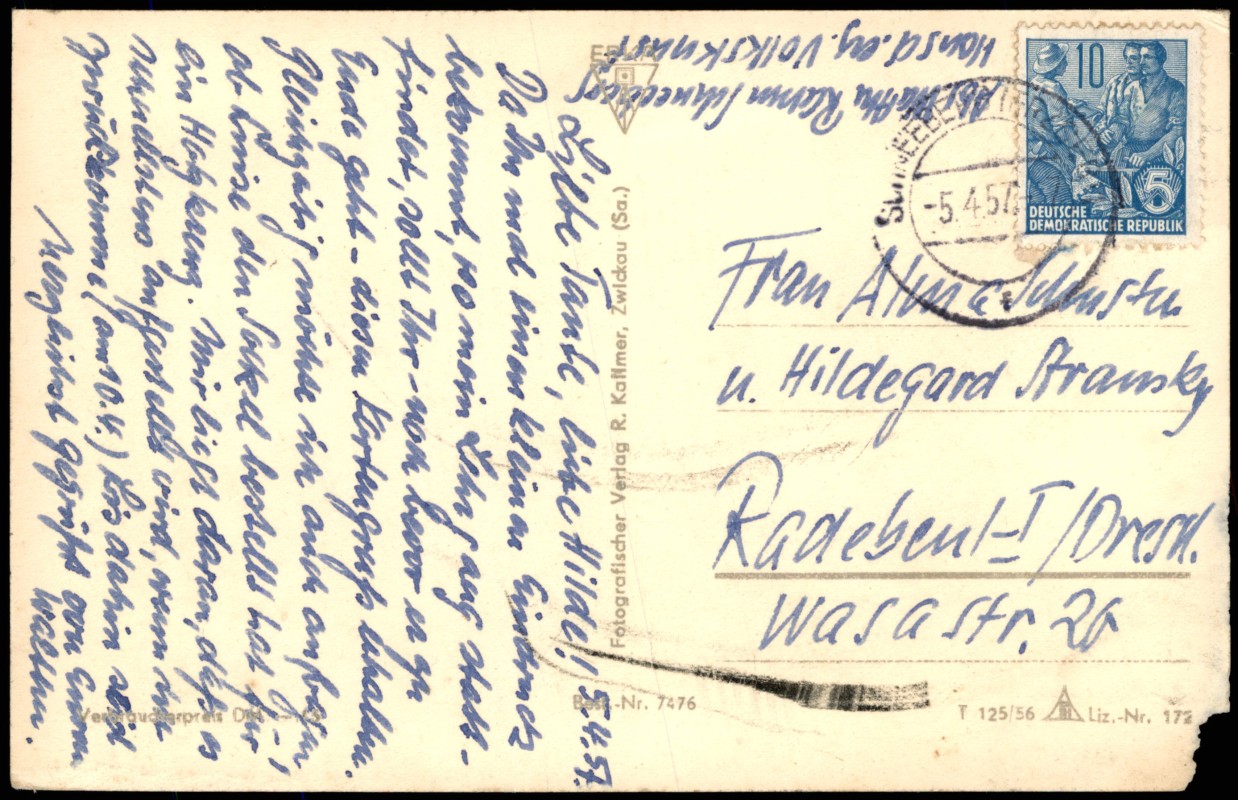 Liebe Tante, liebe Hilde! 5.4.57.
Da Ihr mal einen kleinen Eindruck
bekommt, wo mein Lehrgang statt-
findet, sollt Ihr - noch bevor er zu
Ende geht - diesen Kartengruß erhalten.
Gleichzeitig möchte ich auch anfragen,
ob Luise den Sockel bestellt hat für
ein Holzkreuz. Mir liegt daran, daß es
aufgestellt wird, wenn ich
zurückkomme (am 10.4.) Bis dahin seid
herzlichst gegrüßt von Eurem
Walter.
Abs. Walth. Schneeberg
Haus d. erzg. Volkskunst
10
5
DEUTSCHE
DEMOKRATISCHE REPUBLIK
SCHNEEBERG
-5.4.57
Frau Alma Schuster
u. Hildegard Stransky
Radebeul-I/Dresd.
Wasastr. 26
Fotografischer Verlag R. Kallmer, Zwickau (Sa.)
Verbraucherpreis DM
Best.-Nr. 7476
T 125/56 Liz.-Nr. 172